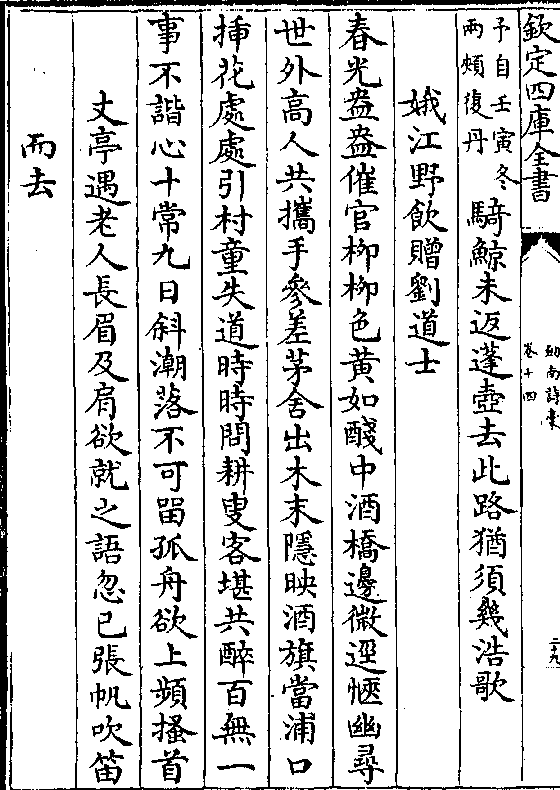 欽定四庫全書
劒南詩稾
卷十四
二十九
予自壬寅冬
兩頰復丹
騎鯨未返蓬壺去此路猶須幾浩歌
娥江野飲贈劉道士
春光盎盎催官柳柳色黄如醆中酒橋邊微逕愜幽尋
世外高人共攜手參差茅舍出木末隱映酒旗當浦口
挿花處處引村童失道時時問耕叟客堪共醉百無一
事不諧心十常九日斜潮落不可㽞孤舟欲上頻搔首
丈亭遇老人長眉及肩欲就之語忽已張帆吹笛
而去